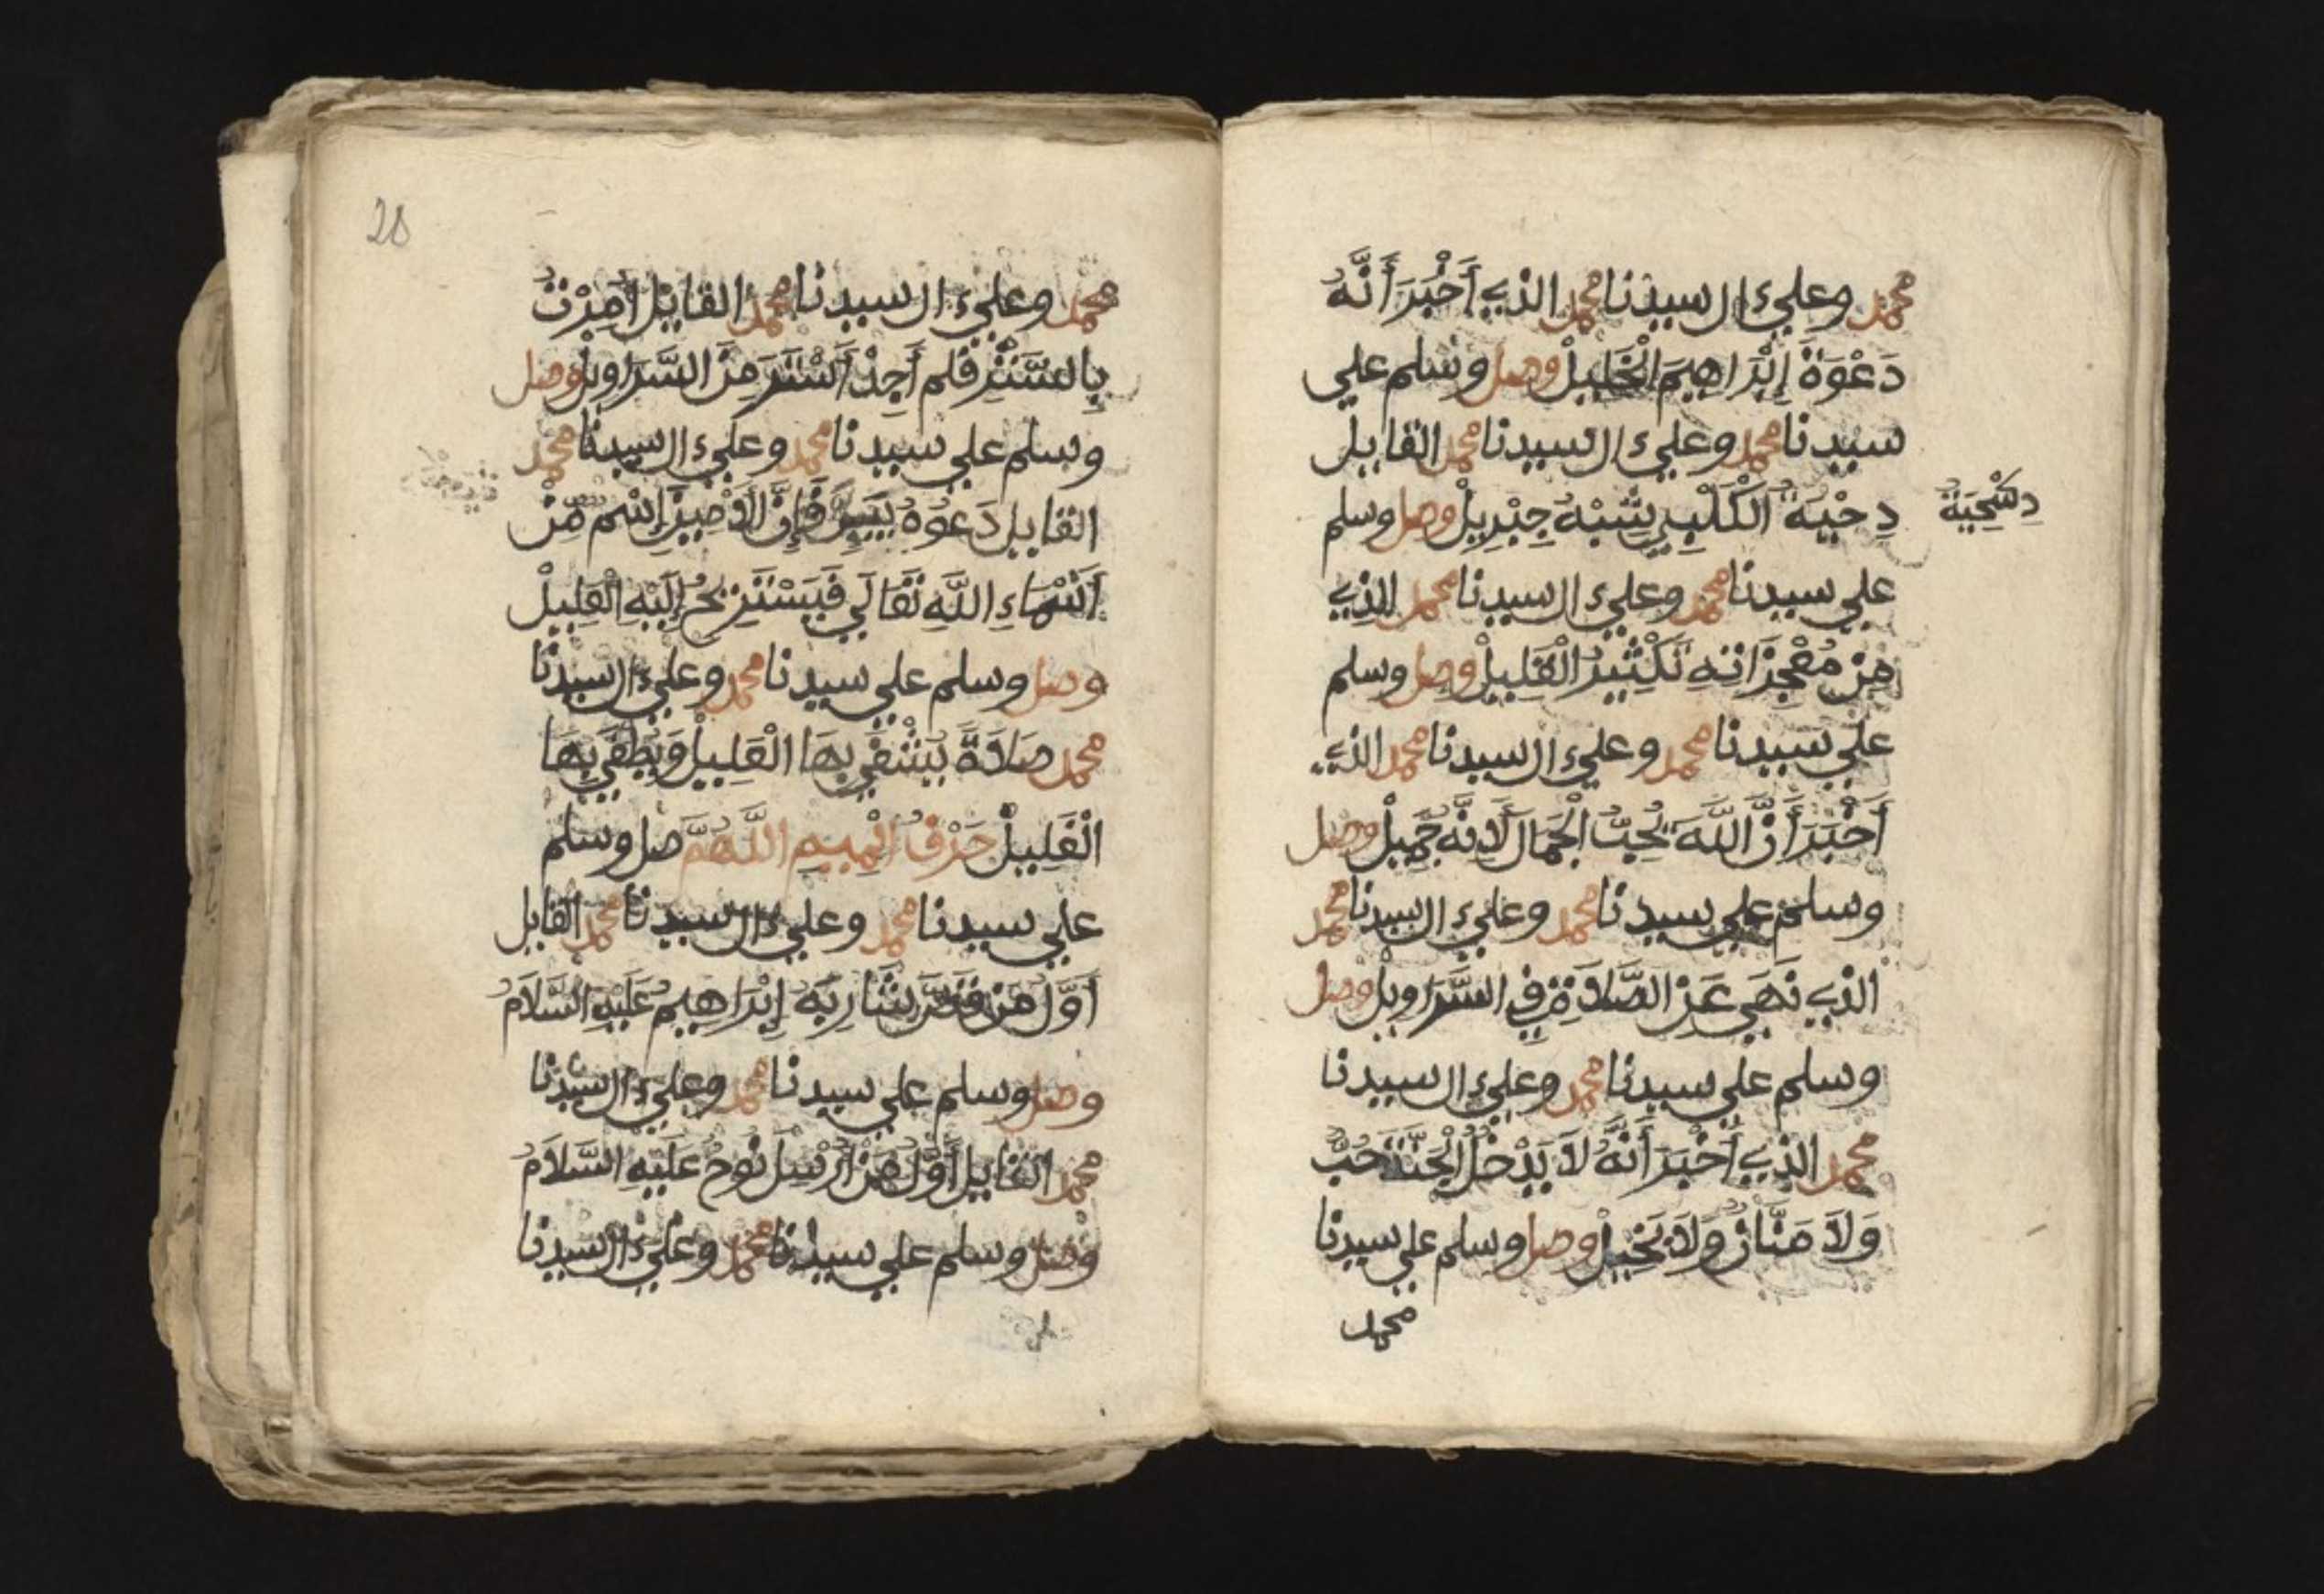 محمد وعلي ءال سيدنا محمد الذي أَخْبَرَ أَنَّهُ
دَعْوَةُ إِبْرَاهِيمَ الْخَلِيلْ وصل وسلم علي
سيدنا محمد وعلي ءال سيدنا محمد القايل
دِحْيَةُ الْكَلْبِي يُشْبِهُ جِبْرِيلْ وصل وسلم
علي سيدنا محمد وعلي ءال سيدنا محمد الذي
مِنْ مُعْجِزَاتِهِ تَكْثِيرُ الْقَلِيلْ وصل وسلم
علي سيدنا محمد وعلي ءال سيدنا محمد الذي
أَخْبَرَ أَنَّ اللَّهَ يُحِبُّ الْجَمَالَ لِأَنَّهُ جَمِيلْ وصل
وسلم علي سيدنا محمد وعلي ءال سيدنا محمد
الذي نَهَى عَنِ الصَّلَاةِ فِي السَّرَاوِيلْ وصل
وسلم علي سيدنا محمد وعلي ءال سيدنا
محمد الذي أَخْبَرَ أَنَّهُ لَا يَدْخُلُ الْجَنَّةَ خَبٌّ
وَلَا مَنَّانٌ وَلَا بَخِيلْ وصل وسلم علي سيدنا
محمد
محمد وعلي ءال سيدنا محمد القايل أُمِرْتُ
بِالتَّسَتُّرِ فلم أَجِدْ أَسْتَرَ مِنَ السَّرَاوِيلْ وصل
وسلم علي سيدنا محمد وعلي ءال سيدنا محمد
القايل دَعُوهُ يَئِنُّ فَإِنَّ الْأَنِينَ إِسْمٌ مِّنْ
أَسْمَاءِ اللَّهِ تَعَالَي فَيَسْتَرِيحُ إِلَيْهِ الْعَلِيلْ
وصل وسلم علي سيدنا محمد وعلي ءال سيدنا
محمد صَلَاةً يَشْتَفِي بِهَا الْعَلِيلْ وَيُطْفَي بِهَا
الْغَلِيلْ حَرْفُ الْمِيمِ اللَّهُمَّ صل وسلم
علي سيدنا محمد وعلي ءال سيدنا محمد القايل
أَوَّلُ مَنْ قَصَّ شَارِبَهُ إِبْرَاهِيمُ عَلَيْهِ السَّلَامُ
وصل وسلم علي سيدنا محمد وعلي ءال سيدنا
محمد القايل أَوَّلُ مَنْ أُرْسِلَ نُوحٌ عَلَيْهِ السَّلَامُ
وصل وسلم علي سيدنا محمد وعلي ءال سيدنا
28